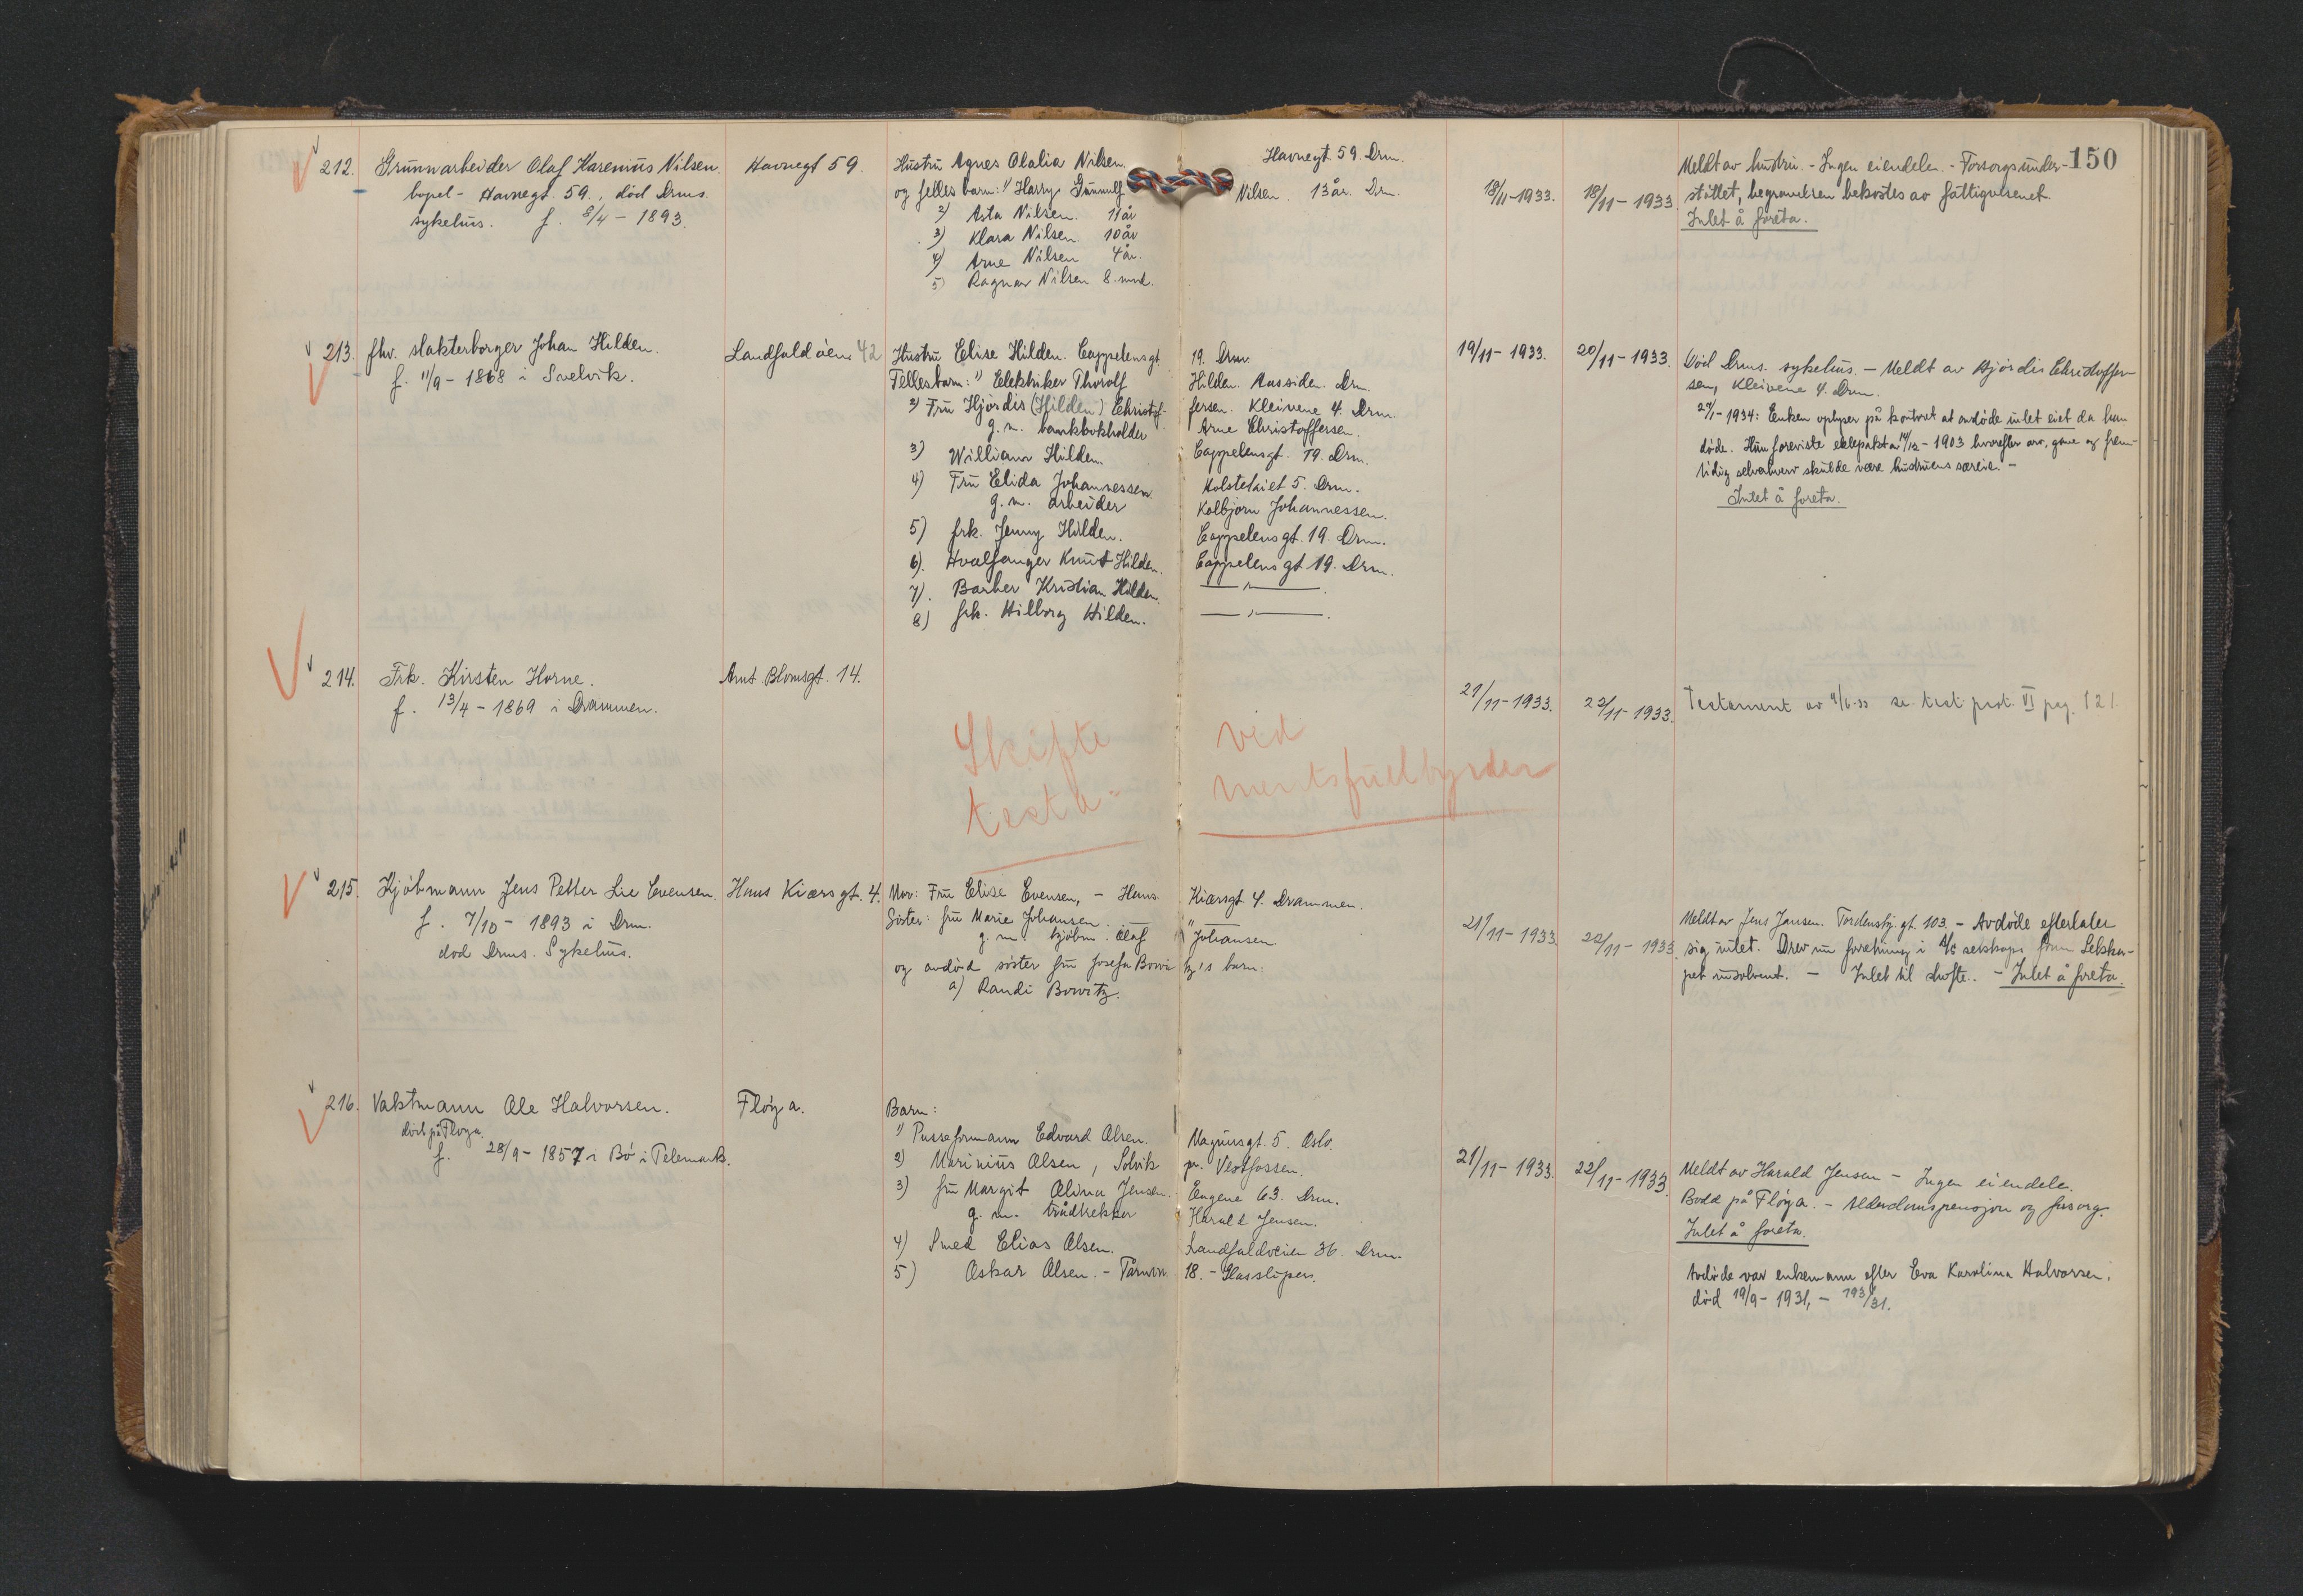 150
212. Grunnarbeider Olaf Karenius Nilsen. Havnegt 59. Hustru Agnes Olalia Nilsen. Havnegt 59. Drm. Meldt av hustru. - Ingen eiendeler. - Forsorgsunder-
bopel - Havnegt. 59., död Drms. og felles barn: 1) Harry Gunnulf Nilsen. 13 år. Drm. 18/11-1933. 18/11-1933. støttet, begravelsen bekostes av fattigvesenet.
sykehus. f. 8/4 - 1893. 2) Asta Nilsen. 11 år Intet å foreta.
3) Klara Nilsen. 10 år
4) Arne Nilsen 4 år.
5) Ragnar Nilsen 8. mnd.
213. fhv. slakterborger Johan Hilden. Landfaldöien 42 Hustru Elise Hilden. Cappelensgt. 19. Drm. 19/11-1933. 20/11-1933. Död Drms. sykehus. - Meldt av Hjördis Christoffer-
f. 11/9 - 1868 i Svelvik. Fellesbarn: 1) Elektriker Thorolf Hilden. Aassiden. Drm. sen, Kleivene 4. Drm.
2) Fru Hjördis (Hilden) Christof- fersen. Kleivene 4. Drm. 24/1-1934: Enken oplyser på kontoret at avdöde intet eiet da han
g. m. bankbokholder Arne Christoffersen. döde. Hun foreviste ektepakt av 14/12-1903 hvorefter arv, gave og frem-
3) William Hilden. Cappelensgt. 19. Drm. tidig selverhverv skulde være hustruens særeie. -
4) Fru Elida Johannessen Holstetaiet 5. Drm. Intet å foreta.
g. m. arbeider Kolbjörn Johannessen.
5) frk. Jenny Hilden. Cappelensgt. 19. Drm.
6). Hvalfanger Knut Hilden. Cappelensgt 19. Drm.
7). Barber Kristian Hilden. —"—.
8) frk. Hilborg Hilden. —"—.
214. Frk. Kirsten Horne. Arnt Blomsgt. 14. 21/11-1933. 22/11-1933. Testament av 9/6-33 se test. prot. VI pag. 121.
f. 13/4 - 1869 i Drammen.
Skifte ved
testa- mentsfullbyrder
215. Kjöbmann Jens Petter Lie Evensen. Hans Kiærsgt. 4. Mor: Fru Elise Evensen, - Hans Kiærsgt 4. Drammen.
f. 7/10 - 1893 i Drm. Söster: fru Marie Johansen. 21/11-1933. 22/11-1933. Meldt av Jens Jansen. Tordenskj. gt. 103. - Avdöde efterlater
död Drms. Sykehus. g. m. kjöbm. Olaf Johansen sig intet. Drev en forretning i A/S selskaps form. Selska-
og avdöd söster fru Josefa Bowi- tz's barn: pet insolvent. - Intet til skifte. - Intet å foreta.
a) Randi Bowitz.
216. Vaktmann Ole Halvorsen. Flöya. Barn:
död på Flöya. 1) Pusseformann Edvard Olsen. Magnusgt. 5. Oslo.
f. 28/9 - 1857 i Bö i Telemark. 2) Marinius Olsen, Solvik pr. Vestfossen. 21/11-1933. 22/11-1933. Meldt av Harald Jensen - Ingen eiendeler.
3) fru Margit Olina Jensen. Engene 63. Drm. Bodd på Flöya. - Alderdomspensjon og forsorg.
g. m. trådtrekker Harald Jensen. Intet å foreta.
4) Smed Elias Olsen. Landfaldöien 36. Drm.
5) Oskar Olsen. - 18. - Glassliper. Avdöde var enkemann efter Eva Karolina Halvorsen,
död 19/9 - 1931, - 193/31.